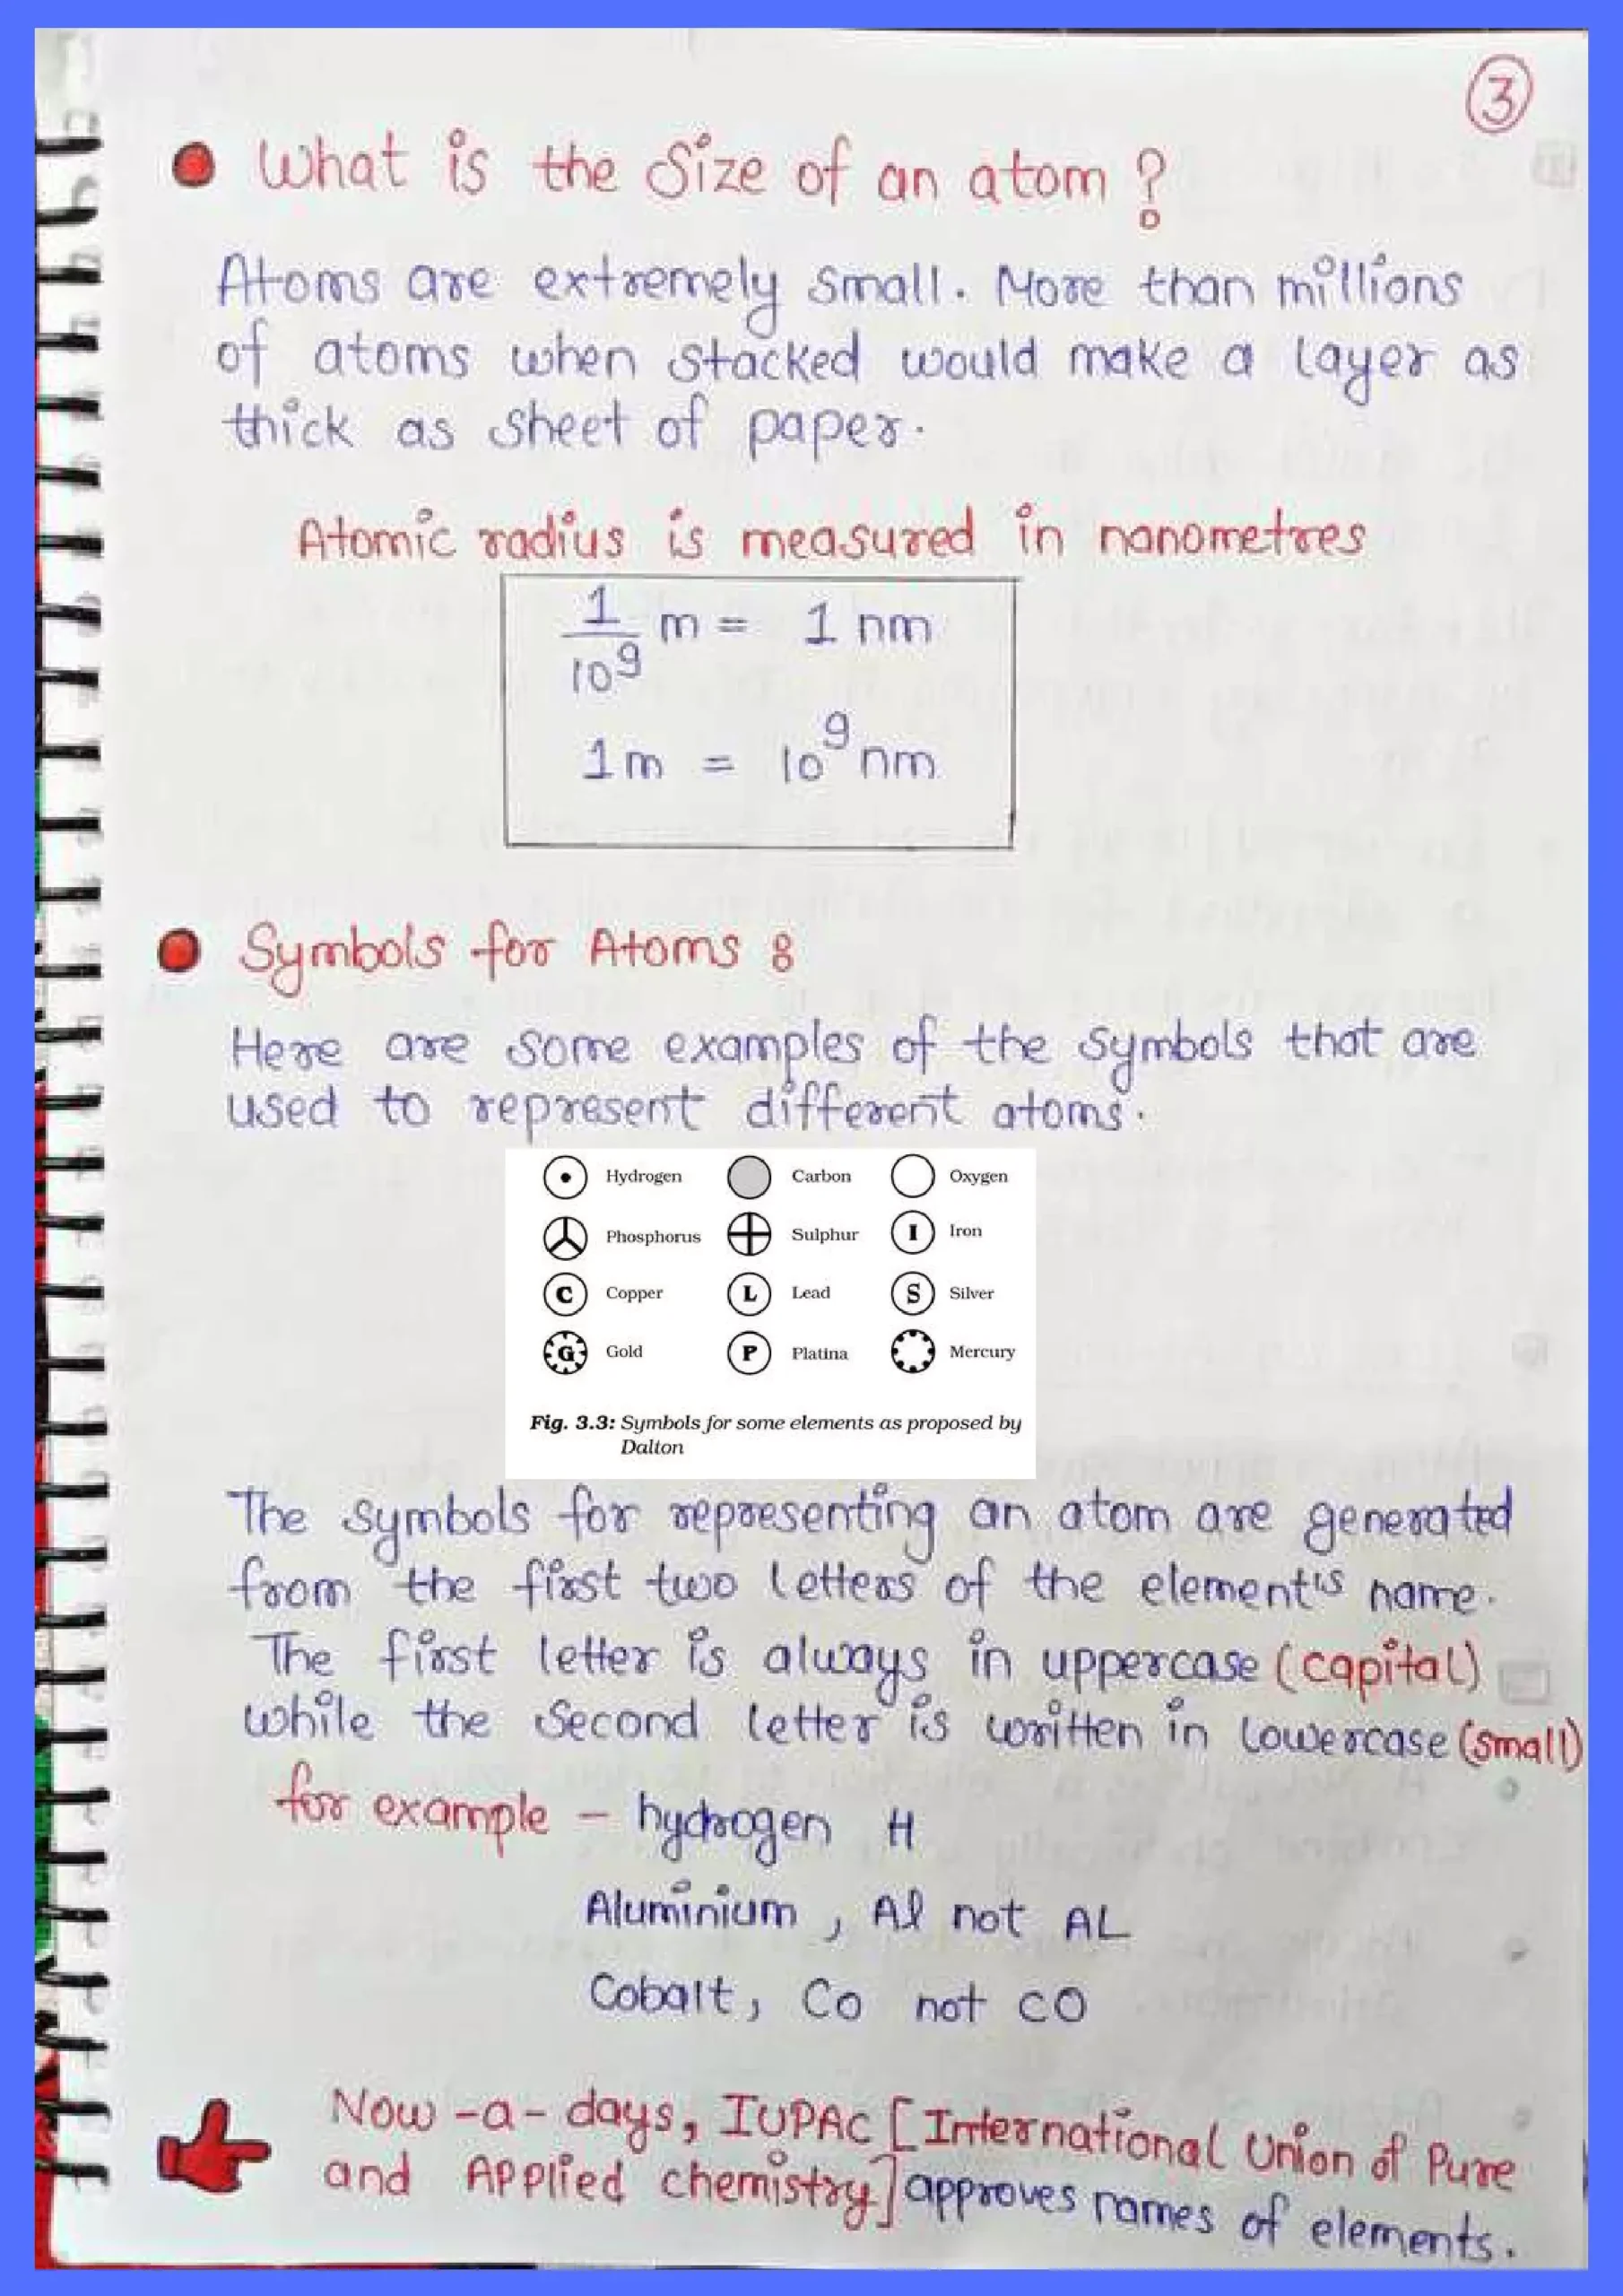 3
What is the Size of an atom ?
Atoms are extremely small. More than millions
of atoms when stacked would make a layer as
thick as sheet of paper.
Atomic radius is measured in nanometres
1/10⁹ m = 1 nm
1m = 10⁹ nm
Symbols for Atoms :
Here are some examples of the symbols that are
used to represent different atoms.
Hydrogen Carbon Oxygen
Phosphorus Sulphur I Iron
C Copper L Lead S Silver
G Gold P Platina Mercury
Fig. 3.3: Symbols for some elements as proposed by
Dalton
The symbols for representing an atom are generated
from the first two letters of the element's name.
The first letter is always in uppercase (capital)
while the second letter is written in lowercase (small)
for example - hydrogen H
Aluminium , Al not AL
Cobalt, Co not CO
Now-a-days, IUPAC [International Union of Pure
and Applied chemistry] approves names of elements.